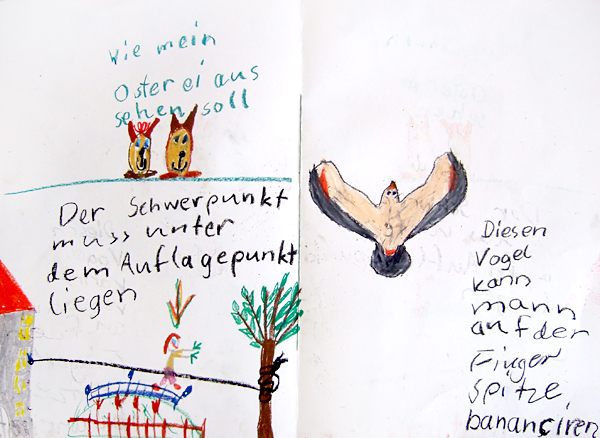 wie mein
Osterei aus
sehen soll
Der Schwerpunkt
muss unter
dem Auflagepunkt
liegen
Diesen
Vogel
kann
mann
auf der
Finger
spitze
bananciren